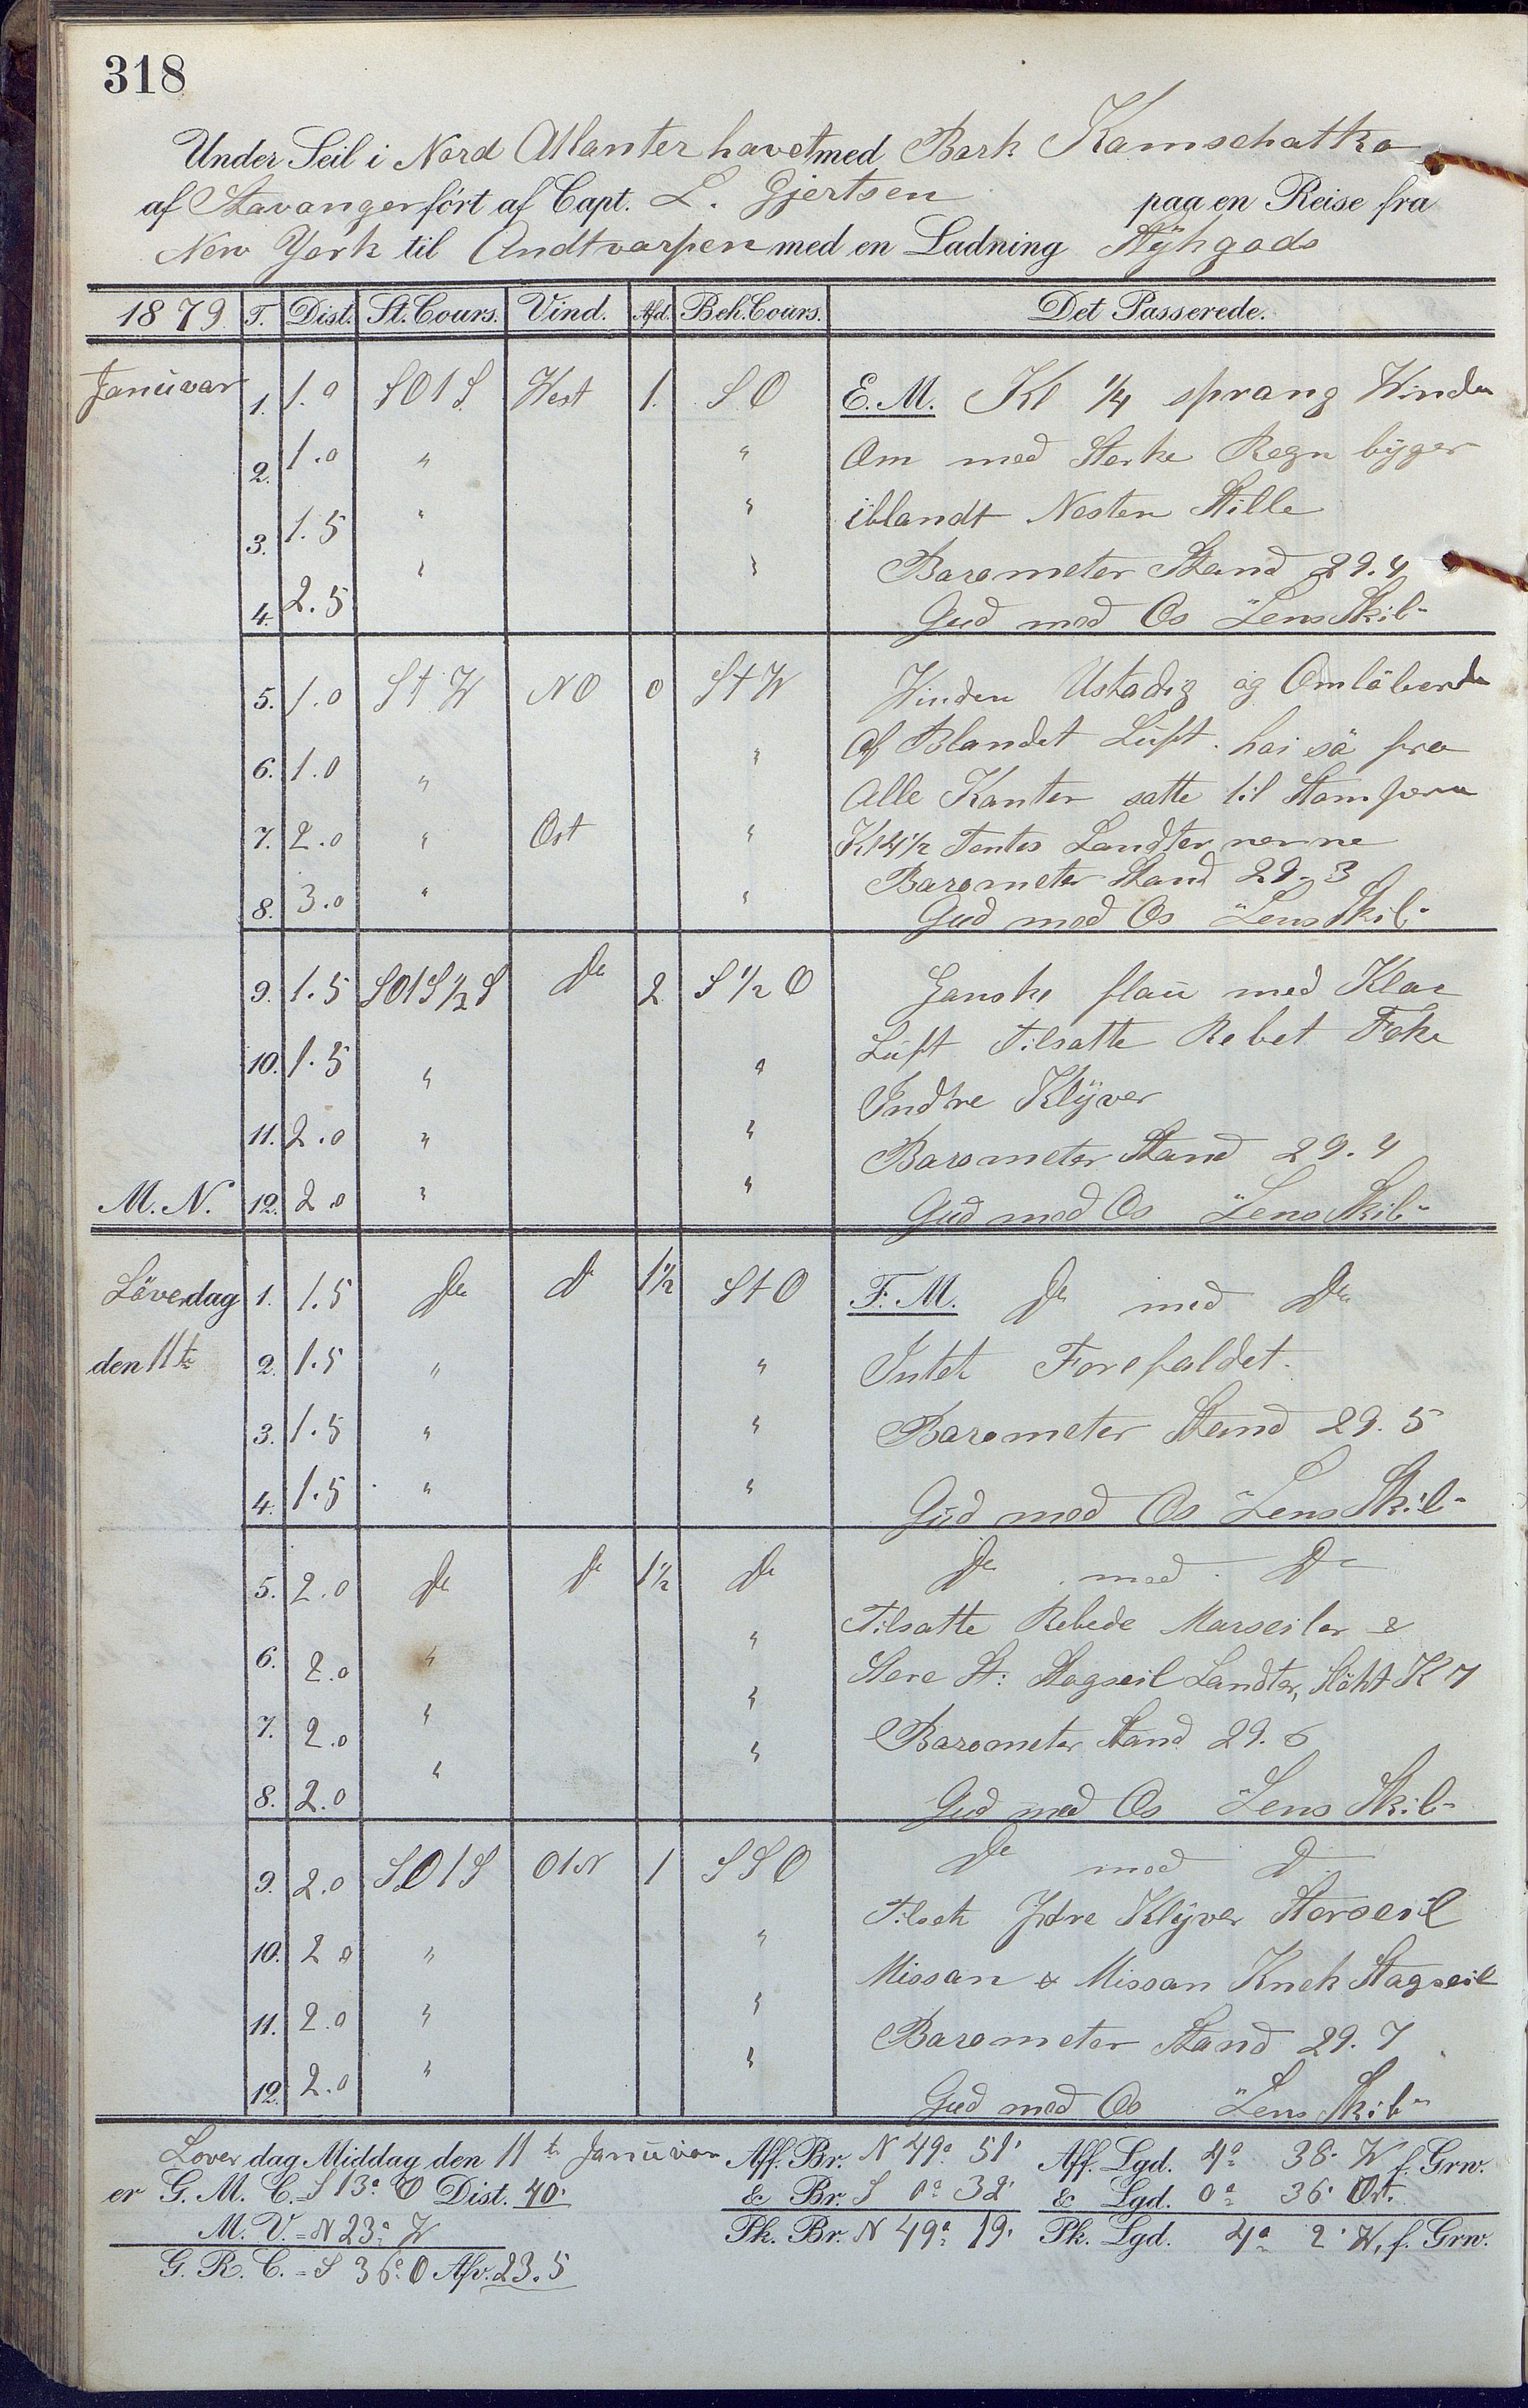 318
Under Seil i Nord Atlanter havet med Bark Kamschatka
af Stavanger fört af Capt. L. Gjertsen paa en Reise fra
New York til Andtvarpen med en Ladning Stÿkgods
1879 T. Dist. St. Cours. Vind. Afd. Beh. Cours. Det Passerede.
Januar 1. 1.0 SO t S West 1. SO E. M. Kl 1/4 sprang Winden
2. 1.0 " " Om med Sterke Regn bÿger
3. 1.5 " " iblandt Nesten Stille
Barometer Stand 29.4
4. 2.5 " " Gud med Os Lens Skib"
5. 1.0 S t W NO 0 S t W Winden Ustadig og Omlöbende
6. 1.0 " " af Blandet Luft. hai sö fra
Alle Kanter satte til Stompern
7. 2.0 " Ost " Kl 4 1/2 Tentes Landternerne
Barometer Stand 29-3
8. 3.0 " " Gud med Os Lens Skib"
9. 1.5 SO t S 1/2 S Do 2 S 1/2 O Ganske flau med Klar
10. 1.5 " " Luft Tilsatte Rebet Foke
11. 2.0 " " Indre Klÿver
Barometer Stand 29.4
M. N. 12. 2.0 " " Gud med Os Lens Skib"
Löverdag 1. 1.5 Do Do 1 1/2 S t O F. M. Do med Do
den 11te 2. 1.5 " " Intet Forefaldet.
3. 1.5 " " Barometer Stand 29.5
4. 1.5 " " Gud med Os Lens Skib"
5. 2.0 Do Do 1 1/2 Do Do med Do
Tilsatte Rebede Marseiler &
6. 2.0 " " Store St: Stagseil Landter, Slökt Kl 7
7. 2.0 " " Barometer Stand 29.6
8. 2.0 " " Gud med Os Lens Skib"
9. 2.0 SO t S O t N 1 SSO Do med Do
Tilsat Ÿdre Klÿver Storseil
10. 2.0 " " Missan & Missan Knek Stagseil
11. 2.0 " " Barometer Stand 29.7
12. 2.0 " " Gud med Os Lens Skib"
Lover dag Middag den 11te Januar Aff. Br. N 49° 51' Aff. Lgd. 4° 38' W f. Grw.
er G. M. C. = S 13° O Dist. 40' & Br. S 0° 32' & Lgd. 0° 36' Ost.
M. V. = N 23° W Pk. Br. N 49° 19' Pk. Lgd. 4° 2' W, f. Grw.
G. R. C. = S 36° O Afv. 23.5